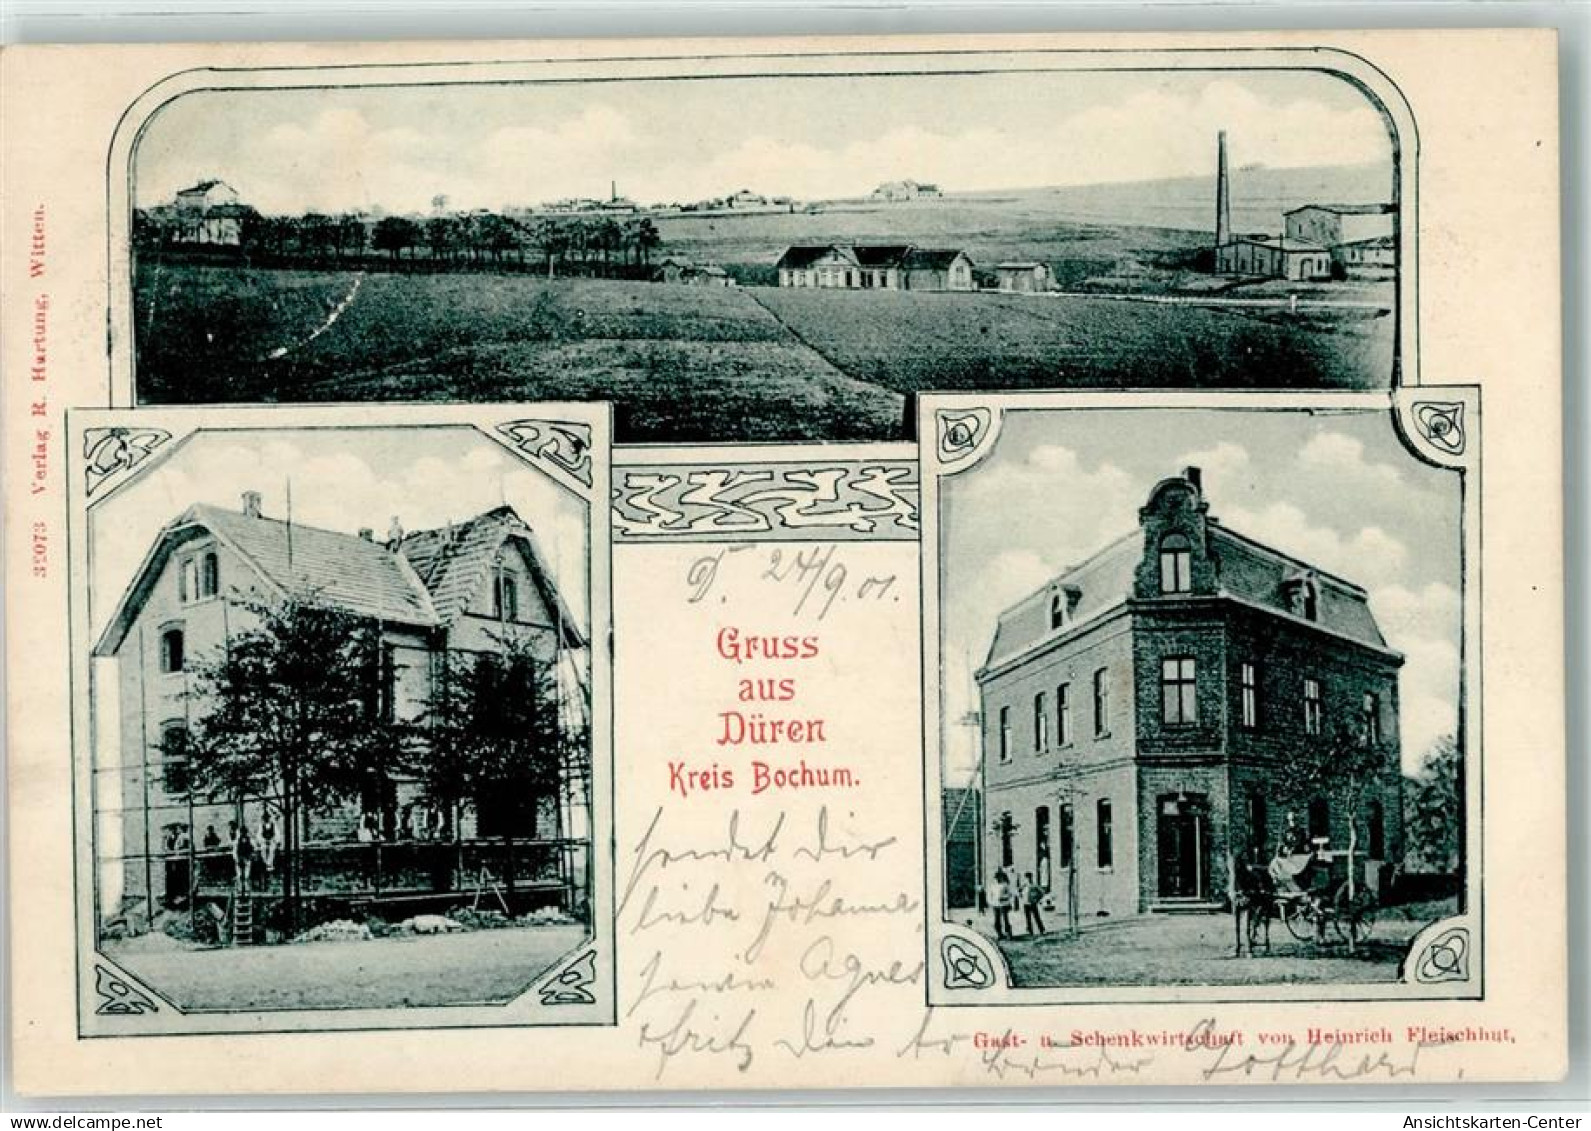 32073 Verlag R. Hartung, Witten.
D. 24/9.01.
Gruss
aus
Düren
Kreis Bochum.
sendet Dir
liebe Johanna,
sowie Agnes
Fritz Dein
Bruder Gotthard.
Gast- u. Schenkwirtschaft von Heinrich Fleischhut.
www.delcampe.net
Ansichtskarten-Center